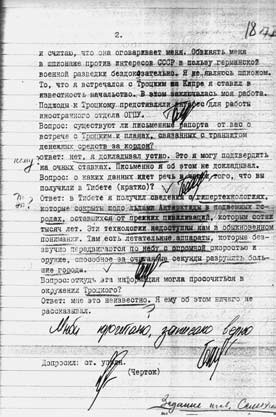 2.
и считаю, что она оговаривает меня. Обвинять меня
в шпионаже против интересов СССР в пользу германской
военной разведки бездоказательно. Я не являюсь шпионом.
То, что я встречался с Троцким на Кипре я ставил в
известность начальство. В этом заключалась моя работа.
Подходы к Троцкому представляли интерес для работы
иностранного отдела ОГПУ.
Вопрос: существуют ли письменные рапорта от вас о
встрече с Троцким и планах, связанных с транзитом
денежных средств за кордон?
Ответ: нет, я докладывал устно. Это я могу подтвердить
на очных ставках. Письменно я об этом не докладывал.
Вопрос: о каких данных идет речь в части того, что вы
получили в Тибете (кратко)?
Ответ: в Тибете я получил сведения о гипертехнологиях,
которые сокрыты под скалами Антарктиды в подземных го-
родах, оставшихся от прежних цивилизаций, которым сотни
тысяч лет. Эти технологии недоступны нам в обыкновенном
понимании. Там есть летательные аппараты, которые без-
звучно передвигаются по небу с огромной скоростью и
оружие, способное за считанные секунды разрушить боль-
шие города.
Вопрос: откуда эта информация могла просочиться в
окружение Троцкого?
Ответ: мне это неизвестно. Я ему об этом ничего не
рассказывал.
Мной прочитано, записано верно
Допросил: ст.
(Черток)